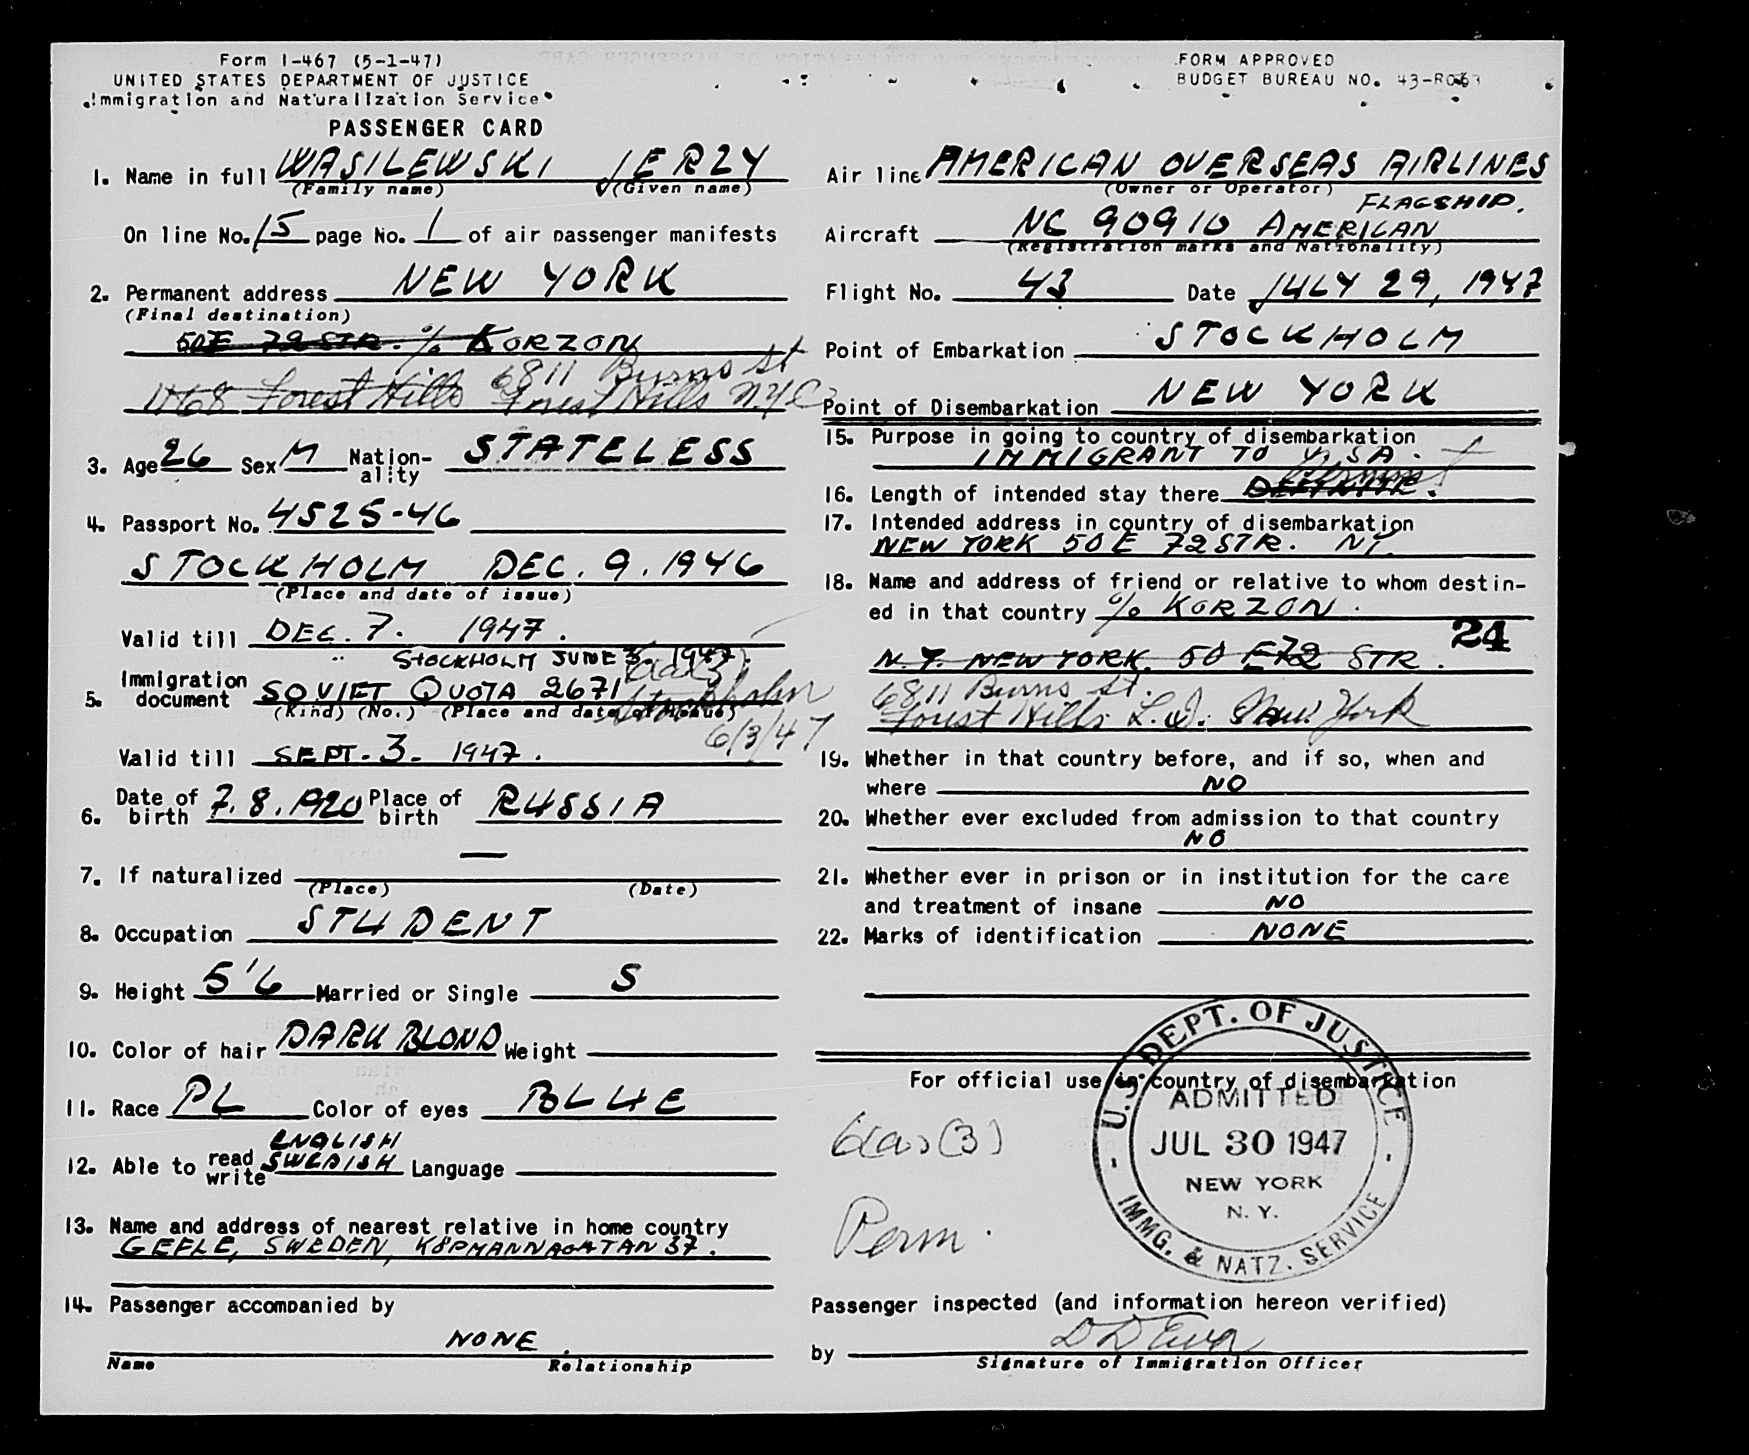 Form I-467 (5-1-47)
UNITED STATES DEPARTMENT OF JUSTICE
Immigration and Naturalization Service
PASSENGER CARD
1. Name in full WASILEWSKI JERZY
(Family name) (Given name)
On line No. 15 page No. 1 of air passenger manifests
2. Permanent address NEW YORK
(Final destination)
50E 72 STR. % KORZON
6811 Burns St
1168 Forest Hills Forest Hills N.Y.C
3. Age 26 Sex M Nation-ality STATELESS
4. Passport No. 4525-46
STOCKHOLM DEC. 9. 1946
(Place and date of issue)
Valid till DEC. 7. 1947.
STOCKHOLM JUNE 3 1947.
5. Immigration document SOVIET QUOTA 2671
(Kind) (No.) (Place and date of issue)
Stockholm
6/3/47
Valid till SEPT. 3. 1947.
6. Date of birth 7.8.1920 Place of birth RUSSIA
7. If naturalized —
(Place) (Date)
8. Occupation STUDENT
9. Height 5'6 Married or Single S
10. Color of hair DARK BLOND Weight
11. Race PL Color of eyes BLUE
ENGLISH
12. Able to read write SWEDISH Language
13. Name and address of nearest relative in home country
GEFLE, SWEDEN, KÖPMANNAGATAN 37.
14. Passenger accompanied by
NONE.
Name Relationship
FORM APPROVED
BUDGET BUREAU NO. 43-R063
Air line AMERICAN OVERSEAS AIRLINES
(Owner or Operator)
FLAGSHIP.
Aircraft NC 90910 AMERICAN
(Registration marks and Nationality)
Flight No. 43 Date JULY 29, 1947
Point of Embarkation STOCKHOLM
Point of Disembarkation NEW YORK
15. Purpose in going to country of disembarkation
IMMIGRANT TO USA.
16. Length of intended stay there
17. Intended address in country of disembarkation
NEW YORK 50 E 72 STR. NY.
18. Name and address of friend or relative to whom destin-
ed in that country % KORZON.
24
N.Y. NEW YORK. 50 E 72 STR.
6811 Burns St.
Forest Hills L.I. New York
19. Whether in that country before, and if so, when and
where NO
20. Whether ever excluded from admission to that country
NO
21. Whether ever in prison or in institution for the care
and treatment of insane NO
22. Marks of identification NONE
For official use in country of disembarkation
U.S. DEPT. OF JUSTICE
ADMITTED
JUL 30 1947
NEW YORK
N. Y.
IMMG. & NATZ. SERVICE
Perm.
Passenger inspected (and information hereon verified)
by
Signature of Immigration Officer